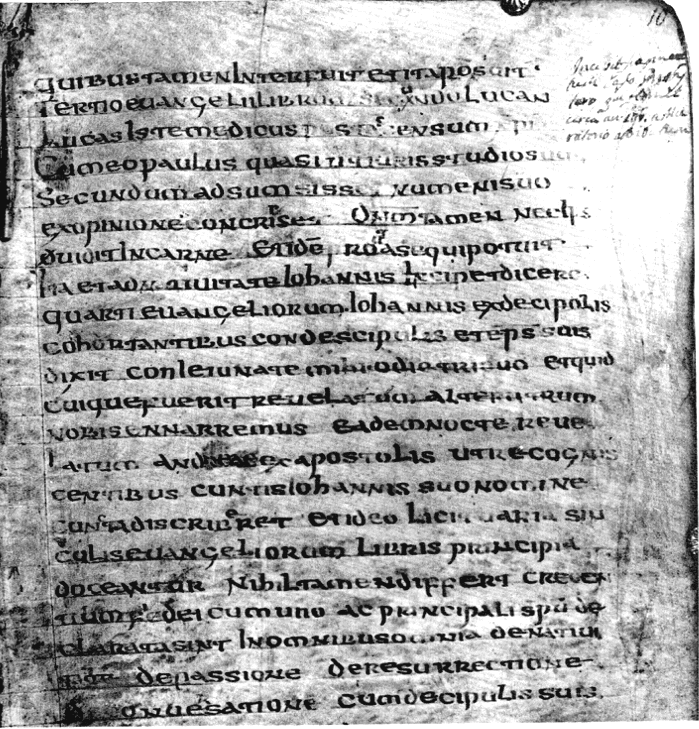 QUIBUS TAMEN INTERFUIT ET ITA POSUIT
TERTIO EUANGELII LIBRUM SECUNDO LUCAN
LUCAS ISTE MEDICUS POST ASCENSUM XPI
CUM EO PAULUS QUASI UT IURIS STUDIOSUM
SECUNDUM ADSUMSISSET NUMENI SUO
EX OPINIONE CONCRISET DNM TAMEN NEC IPSE
DUIDIT IN CARNE ET IDE PROUT ASEQUI POTUIT
ITA ET AD NATIUITATE IOHANNIS INCIPET DICERE
QUARTI EUANGELIORUM IOHANNIS EX DECIPOLIS
COHORTANTIBUS CONDESCIPULIS ET EPS SUIS
DIXIT CONIEIUNATE MIHI ODIE TRIDUO ET QUID
CUIQUE FUERIT REUELATUM ALTERUTRUM
NOBIS ENNARREMUS EADEM NOCTE REUE
LATUM ANDREAE EX APOSTOLIS UT RECOGNIS
CENTIBUS CUNTIS IOHANNIS SUO NOMINE
CUNCTA DISCRIBERET ET IDEO LICIT UARIA SIN
CULIS EUANGELIORUM LIBRIS PRINCIPIA
DOCEANTUR NIHIL TAMEN DIFFERT CREDEN
TIUM FEDEI CUM UNO AC PRINCIPALI SPU DE
CLARATA SINT IN OMNIBUS OMNIA DE NATIUI
TATE DE PASSIONE DE RESURRECTIONE
CONUESATIONE CUM DECIPULIS SUIS
10